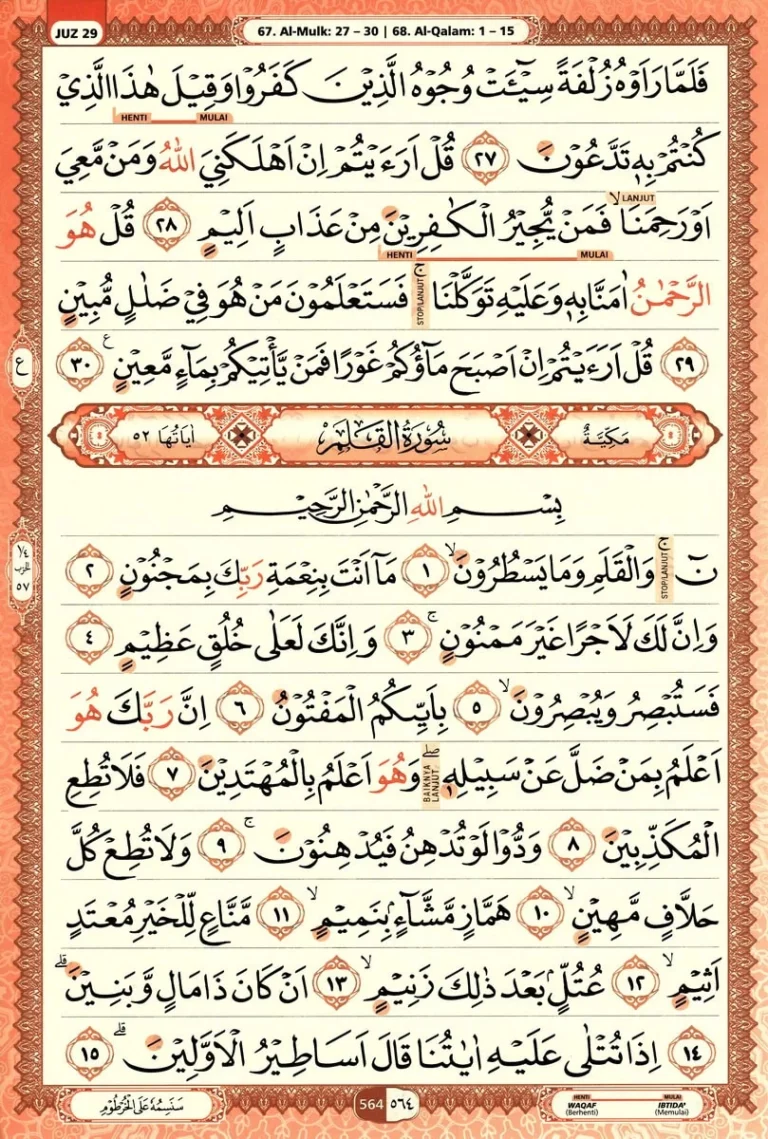 JUZ 29
67. Al-Mulk: 27 – 30 | 68. Al-Qalam: 1 – 15
فَلَمَّا رَاَوْهُ زُلْفَةً سِيْۤـَٔتْ وُجُوْهُ الَّذِيْنَ كَفَرُوْا وَقِيْلَ هٰذَا الَّذِيْ
HENTI MULAI
كُنْتُمْ بِهٖ تَدَّعُوْنَ ٢٧ قُلْ اَرَءَيْتُمْ اِنْ اَهْلَكَنِيَ اللّٰهُ وَمَنْ مَّعِيَ
لا LANJUT
اَوْ رَحِمَنَا فَمَنْ يُّجِيْرُ الْكٰفِرِيْنَ مِنْ عَذَابٍ اَلِيْمٍ ٢٨ قُلْ هُوَ
HENTI MULAI
الرَّحْمٰنُ اٰمَنَّا بِهٖ وَعَلَيْهِ تَوَكَّلْنَا ۚ STOP/LANJUT فَسَتَعْلَمُوْنَ مَنْ هُوَ فِيْ ضَلٰلٍ مُّبِيْنٍ
٢٩ قُلْ اَرَءَيْتُمْ اِنْ اَصْبَحَ مَاۤؤُكُمْ غَوْرًا فَمَنْ يَّأْتِيْكُمْ بِمَاۤءٍ مَّعِيْنٍ ࣖ ٣٠
ع
مَكِّيَّةٌ سُوْرَةُ الْقَلَمِ اٰيَاتُهَا ٥٢
بِسْمِ اللّٰهِ الرَّحْمٰنِ الرَّحِيْمِ
١/٤ الحزب ٥٧
نۤ ۚ STOP/LANJUT وَالْقَلَمِ وَمَا يَسْطُرُوْنَۙ ١ مَآ اَنْتَ بِنِعْمَةِ رَبِّكَ بِمَجْنُوْنٍ ٢
وَاِنَّ لَكَ لَاَجْرًا غَيْرَ مَمْنُوْنٍۚ ٣ وَاِنَّكَ لَعَلٰى خُلُقٍ عَظِيْمٍ ٤
فَسَتُبْصِرُ وَيُبْصِرُوْنَۙ ٥ بِاَيِّىكُمُ الْمَفْتُوْنُ ٦ اِنَّ رَبَّكَ هُوَ
اَعْلَمُ بِمَنْ ضَلَّ عَنْ سَبِيْلِهٖۖ BAIKNYA LANJUT وَهُوَ اَعْلَمُ بِالْمُهْتَدِيْنَ ٧ فَلَا تُطِعِ
الْمُكَذِّبِيْنَ ٨ وَدُّوْا لَوْ تُدْهِنُ فَيُدْهِنُوْنَۚ ٩ وَلَا تُطِعْ كُلَّ
حَلَّافٍ مَّهِيْنٍۙ ١٠ هَمَّازٍ مَّشَّاۤءٍۢ بِنَمِيْمٍۙ ١١ مَّنَّاعٍ لِّلْخَيْرِ مُعْتَدٍ
اَثِيْمٍۙ ١٢ عُتُلٍّۢ بَعْدَ ذٰلِكَ زَنِيْمٍۙ ١٣ اَنْ كَانَ ذَا مَالٍ وَّبَنِيْنَۗ
١٤ اِذَا تُتْلٰى عَلَيْهِ اٰيٰتُنَا قَالَ اَسَاطِيْرُ الْاَوَّلِيْنَۗ ١٥
سَنَسِمُهٗ عَلَى الْخُرْطُوْمِ
564 ٥٦٤
HENTI MULAI
WAQAF IBTIDA'
(Berhenti) (Memulai)